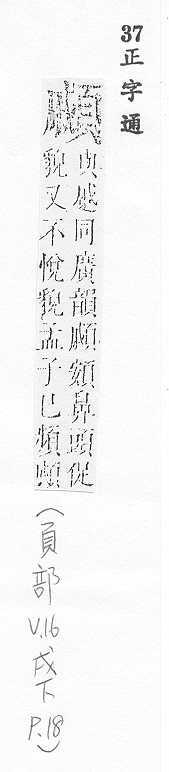 37 正字通
顣
與慼同廣韻顣頞鼻頭促
貌又不悅貌孟子已頻顣
(頁部 V.16 戌下 P.18)